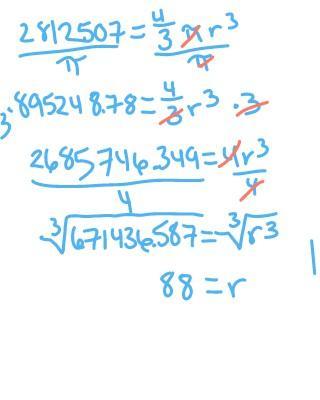 2812507 = 4/3 π r³
π π
3· 895248.78 = 4/3 r³ · 3
2685746.349 = 4r³
4 4
³√671436.587 = ³√r³
88 = r